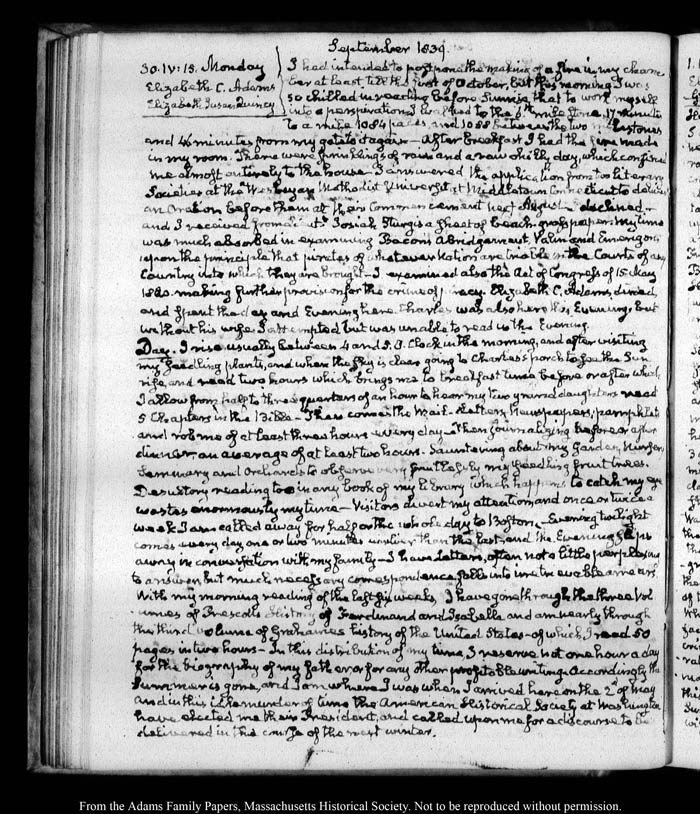 September 1839.
30. IV: 15. Monday
Elizabeth C. Adams
Elizabeth Susan Quincy
I had intended to postpone the making of a fire in my cham
ber at least till the first of October, but this morning I was
so chilled in reading before Sunrise that to work myself
into a perspiration I walked to the 8. mile stone, 17 minutes
to a mile 1084 paces, and 1088 between the two milestones
and 46 minutes from my gate to it again — After breakfast I had the fire made
in my room. There were sprinklings of rain and a raw chilly day, which confined
me almost entirely to the house. I answered the application from two Literary
Societies at the Wesleyan Methodist University at Middletown Connecticut to deliver
an Oration before them at their Commencement next August — declined —
and I received from Josiah Sturgis a sheet of beach-grass paper. My time
was much absorbed in examining Bacon's Abridgement, Vatin and Emerigon
upon the principle that pirates of whatever Nation are triable in the Courts of any
Country into which they are brought — I examined also the Act of Congress of 15 May
1820. making further provision for the crime of piracy. Elizabeth C. Adams, dined
and spent the day and Evening here. Charles was also here this Evening, but
without his wife. I attempted but was unable to read in the Evening.
Day. I rise usually between 4 and 5. O. Clock in the morning, and after visiting
my seedling plants, and when the sky is clear going to Charles's porch to see the Sun
rise, and read two hours which brings me to breakfast time before or after which
I allow from half to three quarters of an hour to hear my two grand daughters read
5 Chapters in the Bible — Then comes the Mail. Letters, Newspapers, pamphlets
and rob me of at least three hours every day — Then journalizing before or after
dinner, an average of at least two hours. Sauntering about my Garden, Nursery,
Seminary and Orchards to observe very fruitlessly my seedling fruit trees.
Desultory reading too in any book of my Library which happens to catch my eye
wastes enormously my time — Visitors divert my attention, and once or twice a
week I am called away for half or the whole day to Boston — Evening twilight
comes every day one or two minutes earlier than the last, and the Evening slips
away in conversation with my family — I have Letters, often not a little perplexing
to answer, but much necessary correspondence falls into irretrievable arrears.
With my morning reading of the last six weeks, I have gone through the three Vol
-umes of Prescott's History of Ferdinand and Isabella and am nearly through
the third volume of Grahame's history of the United States — of which I read 50
pages in two hours — In this distribution of my time, I reserve not one hour a day
for the biography of my father or for any other profitable writing. Accordingly the
Summer is gone, and I am where I was when I arrived here on the 2d of May
And in this idle murder of time the American Historical Society at Washington
have elected me their President, and called upon me for a discourse to be
delivered in the course of the next winter.
From the Adams Family Papers, Massachusetts Historical Society. Not to be reproduced without permission.